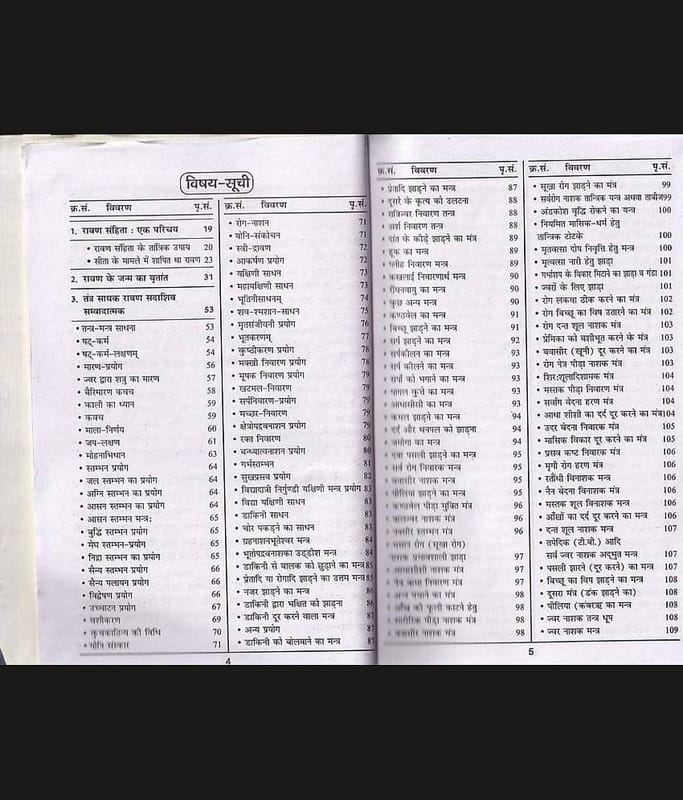 विषय-सूची
क्र.सं. विवरण पृ.सं.
1. रावण संहिता : एक परिचय 19
• रावण संहिता के तांत्रिक उपाय 20
• सीता के मामले में शापित था रावण 23
2. रावण के जन्म का वृतांत 31
3. तंत्र साधक रावण सदाशिव
सम्वादात्मक 53
• तन्त्र-मन्त्र साधना 53
• षट्-कर्म 54
• षट्-कर्म-लक्षणम् 54
• मारण-प्रयोग 56
• ज्वर द्वारा शत्रु का मारण 57
• वैरिमारण कवच 58
• काली का ध्यान 59
• कवच 59
• माला-निर्णय 60
• जप-लक्षण 61
• मोहनाभिधान 63
• स्तम्भन प्रयोग 64
• जल स्तम्भन का प्रयोग 64
• अग्नि स्तम्भन का प्रयोग 64
• आसन स्तम्भन का प्रयोग 64
• आसन स्तम्भन मन्त्र: 65
• बुद्धि स्तम्भन प्रयोग 65
• मेघ स्तम्भन-प्रयोग 65
• निद्रा स्तम्भन का प्रयोग 65
• सैन्य स्तम्भन प्रयोग 66
• सैन्य पलायन प्रयोग 66
• विद्वेषण प्रयोग 66
• उच्चाटन प्रयोग 67
• वशीकरण 69
• की विधि 70
• योनि संस्कार 71
क्र.सं. विवरण पृ.सं.
• रोग-नाशन 71
• योनि-संकोचन 71
• स्त्री-द्रावण 72
• आकर्षण प्रयोग 72
• यक्षिणी साधन 73
• महायक्षिणी साधन 73
• भूतिनीसाधनम् 74
• शव-श्मशान-साधन 75
• मृतसंजीवनी प्रयोग 76
• भूतकरणम् 77
• कुष्ठीकरण प्रयोग 78
• मक्खी निवारण प्रयोग 78
• मूषक निवारण प्रयोग 79
• खटमल-निवारण 79
• सर्पनिवारण-प्रयोग 79
• मच्छर-निवारण 79
• क्षेत्रोपद्रवनाशन प्रयोग 79
• रक्त निवारण 80
• बन्ध्यात्वनाशन प्रयोग 80
• गर्भस्तम्भन 81
• सुखप्रसव प्रयोग 82
• विद्यादात्री निर्गुण्डी यक्षिणी मन्त्र प्रयोग 83
• विद्या यक्षिणी साधन 83
• डाकिनी साधन 83
• चोर पकड़ने का साधन 83
• ग्रहनाशनभूतेश्वर मन्त्र 84
• भूतोपद्रवनाशका उड्डीश मन्त्र 84
• डाकिनी से बालक को छुड़ाने का मन्त्र 85
• प्रेतादि या रोगादि झाड़ने का उत्तम मन्त्र 85
• नजर झाड़ने का मन्त्र 86
• डाकिनी द्वारा भक्षित को झाड़ना 86
• डाकिनी दूर करने वाला मन्त्र 87
• अन्य प्रयोग 87
• डाकिनी को बोलवाने का मन्त्र 87
4
क्र.सं. विवरण पृ.सं.
• प्रेतादि झाड़ने का मन्त्र 87
• दूसरे के कृत्य को उलटना 88
• रात्रिज्वर निवारण तन्त्र 88
• अर्श निवारण तन्त्र 88
• दांत के कीड़े झाड़ने का मंत्र 89
• हूक का मन्त्र 89
• प्लीह निवारण मन्त्र 89
• कखलाई निवारणार्थ मन्त्र 90
• रींघनवायु का मन्त्र 90
• कुछ अन्य मन्त्र 90
• कण्ठवेल का मन्त्र 91
• बिच्छू झाड़ने का मन्त्र 91
• सर्प झाड़ने का मन्त्र 92
• सर्पकीलन का मन्त्र 93
• सर्प कीलने का मन्त्र 93
• सर्पों को भगाने का मन्त्र 93
• पागल कुत्ते का मन्त्र 93
• आधासीसी का मन्त्र 93
• झाड़ने का मन्त्र 94
• दर्द और थनपल को झाड़ना 94
• का मन्त्र 94
• पसली झाड़ने का मन्त्र 95
• सर्व रोग निवारक मन्त्र 95
• बवासीर नाशक मन्त्र 95
• पीलिया झाड़ने का मन्त्र 95
• कण्ठवेल पीड़ा मुक्ति मंत्र 96
• मन्त्र 96
• नकसीर स्तम्भन मन्त्र 96
रोग (सूखा रोग)
नाशक झाड़ा 97
• आधाशीशी नाशक मंत्र 97
• निवारण मंत्र 97
• पचाने का मंत्र 98
• आँख की फूली काटने हेतु 98
• शारीरिक पीड़ा नाशक मंत्र 98
• बवासीर नाशक मंत्र 98
क्र.सं. विवरण पृ.सं.
• सूखा रोग झाड़ने का मंत्र 99
• सर्वरोग नाशक तान्त्रिक यन्त्र अथवा ताबीज99
• अंडकोश वृद्धि रोकने का यन्त्र 100
• नियमित मासिक-धर्म हेतु
तान्त्रिक टोटके 100
• मृतवत्सा दोष निवृत्ति हेतु मन्त्र 100
• मृत्वत्सा नारी हेतु झाड़ा 101
• गर्भाशय के विकार मिटाने का झाड़ा व गंडा 101
• ज्वरों के लिए झाड़ा 101
• रोग लकवा ठीक करने का मंत्र 102
• रोग बिच्छू का विष उतारने का मंत्र 102
• रोग दन्त शूल नाशक मंत्र 103
• प्रेमिका को वशीभूत करने के मंत्र 103
• बवासीर (खूनी) दूर करने का मंत्र 103
• रोग नेत्र पीड़ा नाशक मंत्र 103
• शिर:शूलादिशामक मंत्र 104
• मस्तक पीड़ा निवारण मंत्र 104
• सर्वांग वेदना हरण मंत्र 104
• आधा शीशी का दर्द दूर करने का मंत्र104
• उदर वेदना निवारक मंत्र 105
• मासिक विकार दूर करने का मंत्र 105
• प्रसव कष्ट निवारक मंत्र 106
• मृगी रोग हरण मंत्र 106
• रतौंधी विनाशक मन्त्र 106
• नैन वेदना विनाशक मंत्र 106
• मस्तक शूल विनाशक मन्त्र 106
• आँखों का दर्द दूर करने का मन्त्र 106
• दन्त शूल नाशक मन्त्र 107
• तपेदिक (टी.बी.) आदि
सर्व ज्वर नाशक अद्भुत मन्त्र 107
• पसली झारने (दूर करने) का मन्त्र 107
• बिच्छू का विष झाड़ने का मन्त्र 108
• दूसरा मंत्र (डंक झाड़ने का) 108
• पीलिया (कंवरू का मन्त्र 108
• ज्वर नाशक तन्त्र धूप 108
• ज्वर नाशक मन्त्र 109
5